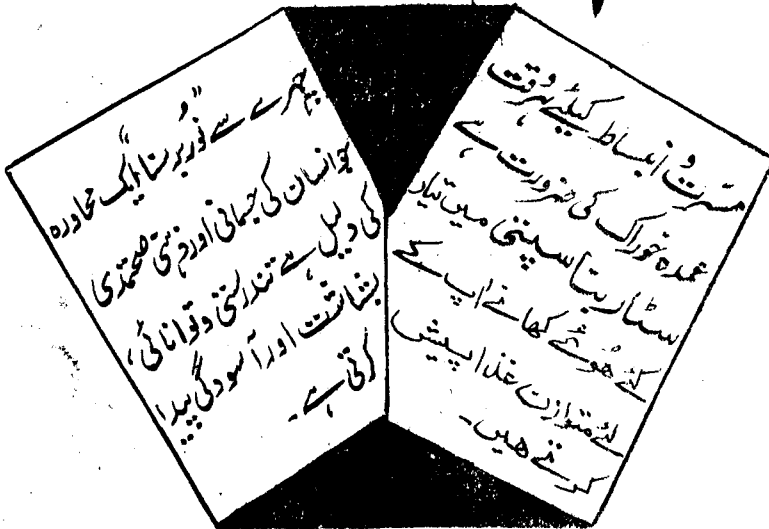 مسرّت و انبساط کیلئے ہروقت
عمدہ خوراک کی ضرورت ہے
سٹار بناسپتی میں تیار
کئے ہوئے کھانے آپ کے
لئے متوازن غذا پیش
کرتے ہیں۔
چہرے سے "نُور برسنا" ایک محاورہ
جو انسان کی جسمانی اور ذہنی صحتمندی
کی دلیل ہے تندرستی و توانائی،
بشاشت اور آسودگی پیدا
کرتی ہے۔